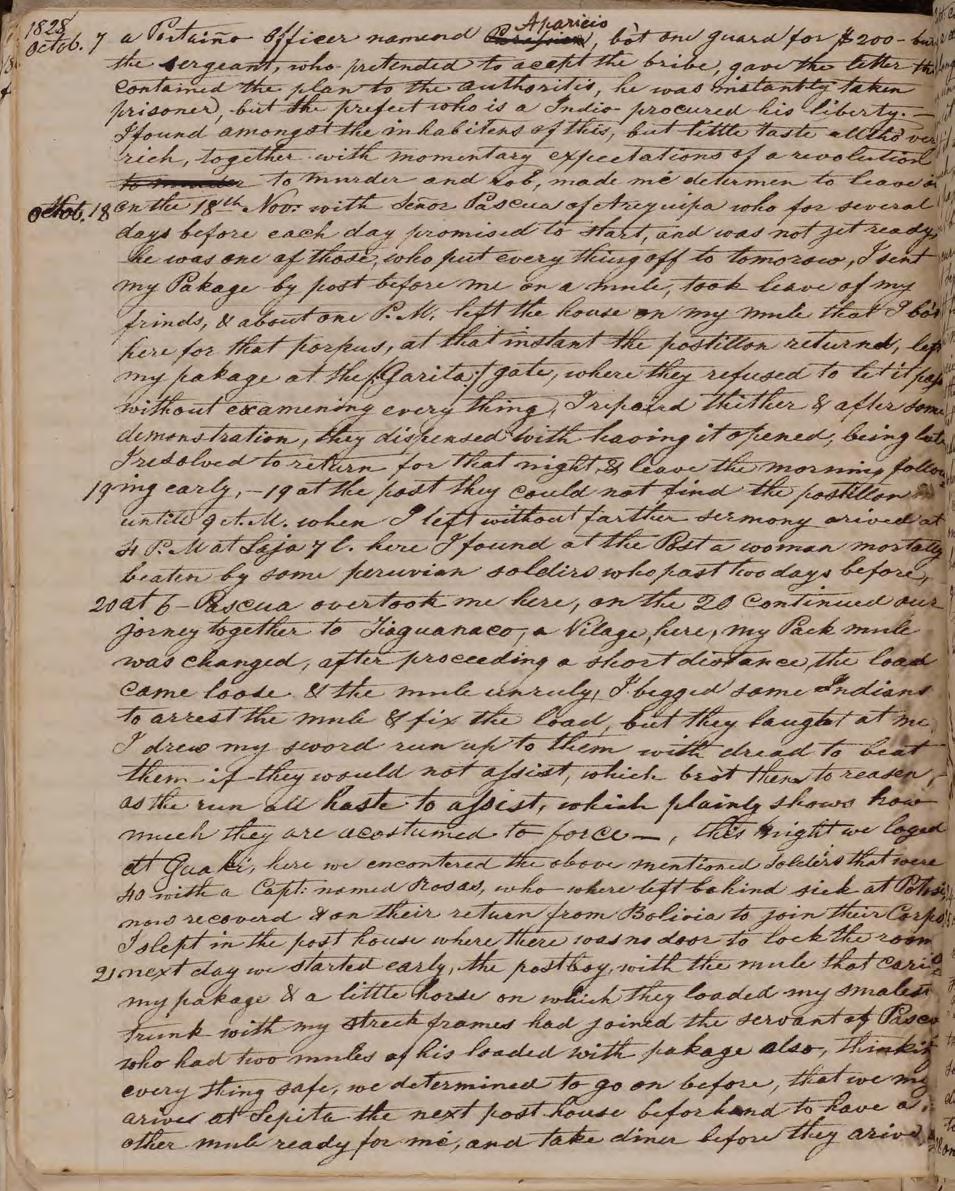 1828
Octob. 7 a Portaiño Officer namend Aparicio, bot one guard for $200 - but
the sergeant, who pretended to acept the bribe, gave the letter th
contained the plan to the authoritis, he was instantly taken
prisoner, but the prefect who is a Indio procured his liberty. —
I found amongst the inhabitens of this, but little taste alltho ver
rich, together with momentary expectations of a revolution
to murder to murder and rob, made me determen to leave
Octob. 18 on the 18th Nov. with Señor Pascua of Arequipa who for several
days before each day promised to start, and was not jet ready,
he was one of those, who put every thing off to tomorow, I sent
my Pakage by post before me on a mule, took leave of my
frinds, & about one P.M. left the house on my mule that I bot
here for that porpus, at that instant the postillon returned, left
my pakage at the (Garita) gate, where they refused to let it pass
without examening every thing, I repaird thither & after some
demonstration, they dispensed with having it opened, being late
I resolved to return for that night & leave the morning follow
19 ing early, - 19 at the post they could not find the postillon
untill 9 A.M. when I left without farther sermony arived at
4 P.M at Laja 7 l. here I found at the Post a woman mortally
beaten by some peruvian soldirs who past two days before,
20 at 6 - Pascua overtook me here, on the 20 continued our
jorney together to Tiaguanaco, a Vilage, here, my Pack mule
was changed, after proceeding a short distance, the load
came loose & the mule unruly, I begged some Indians
to arrest the mule & fix the load, but they laught at me,
I drew my sword run up to them with dread to beat
them if they would not assist, which brot them to reason,
as the run all haste to assist, which plainly shows how
much they are acostumed to force —, this night we loged
at Guaki, here we encontered the above mentioned Soldirs that were
40 with a Capt: named Rosas, who where left behind sick at Potosi
now recoverd & on their return from Bolivia to join their Corps,
I slept in the post house where there was no door to lock the room
21 next day we started early, the postboy, with the mule that carid
my pakage & a little horse on which they loaded my smalest
trunk with my streck frames had joined the servant of Pascu
who had two mules of his loaded with pakage also, thinkin
every thing safe, we determined to go on before, that we m
arives at Sepita the next post house beforhand to have a
other mule ready for me, and take diner before they arive